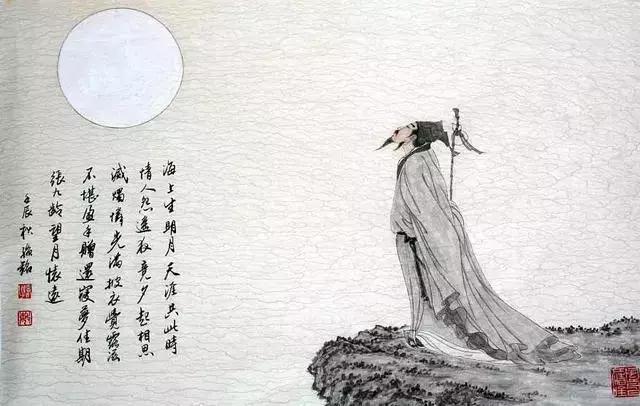 海上生明月天涯共此時
情人怨遥夜竟夕起相思
滅燭憐光滿披衣覺露滋
不堪盈手贈還寢夢佳期
張九齡望月懷遠
壬辰秋